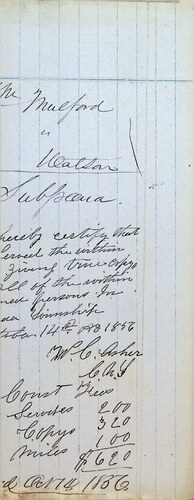 Mulford
vs
Watson
Subpoena
hereby certify that
erved the within
giving true copys
all of the within
ned persons. In
Township
14th AD 1856
W. C. Asher
Const Fees
Services 200
Copys 320
Miles 100
$620
d Oct 14 1856